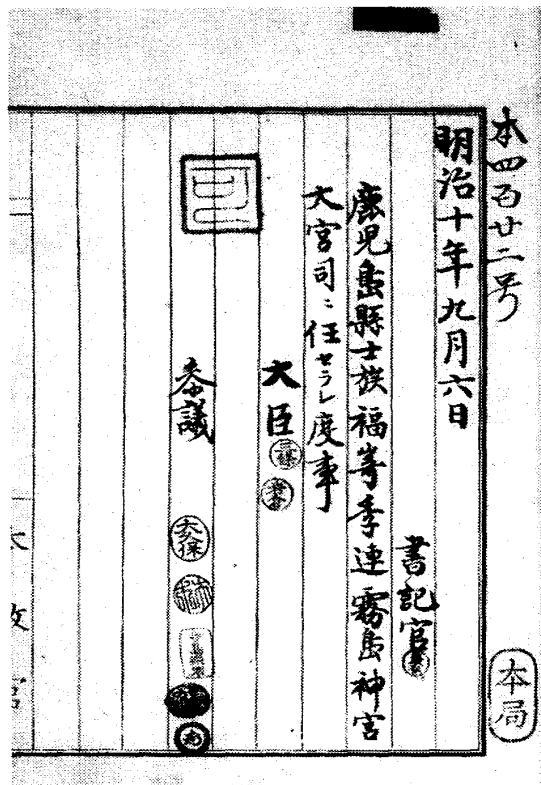 本四百廿二号
本局
明治十年九月六日
書記官
鹿児島縣士族福崎季連霧島神宮
大宮司ニ任セラレ度事
大臣
参議
大久保